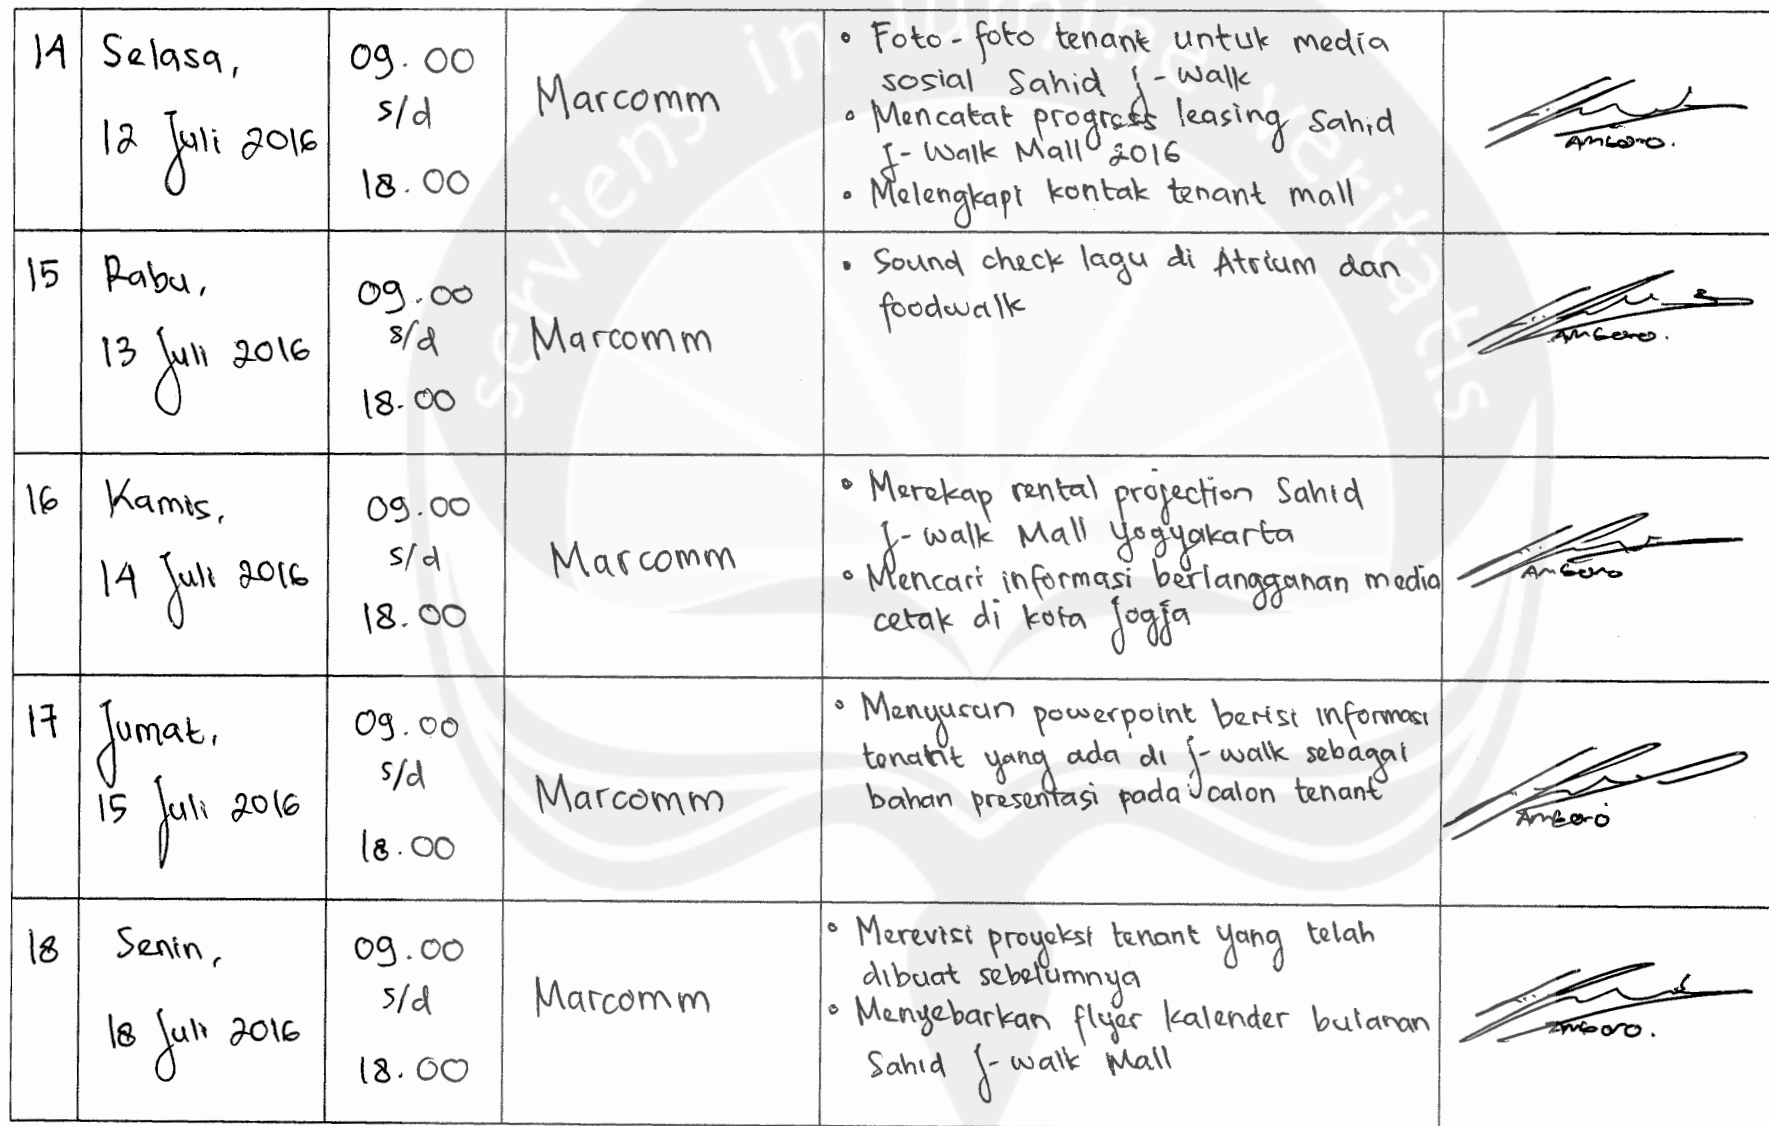 serviens in lumine veritatis
14
Selasa,
12 Juli 2016
09.00
s/d
18.00
Marcomm
• Foto-foto tenant untuk media
sosial Sahid J-Walk
• Mencatat progress leasing Sahid
J-Walk Mall 2016
• Melengkapi kontak tenant mall
15
Rabu,
13 Juli 2016
09.00
s/d
18.00
Marcomm
• Sound check lagu di Atrium dan
foodwalk
16
Kamis,
14 Juli 2016
09.00
s/d
18.00
Marcomm
• Merekap rental projection Sahid
J-walk Mall Yogyakarta
• Mencari informasi berlangganan media
cetak di kota Jogja
17
Jumat,
15 Juli 2016
09.00
s/d
18.00
Marcomm
• Menyusun powerpoint berisi informasi
tenant yang ada di J-walk sebagai
bahan presentasi pada calon tenant
18
Senin,
18 Juli 2016
09.00
s/d
18.00
Marcomm
• Merevisi proyeksi tenant yang telah
dibuat sebelumnya
• Menyebarkan flyer kalender bulanan
Sahid J-walk Mall